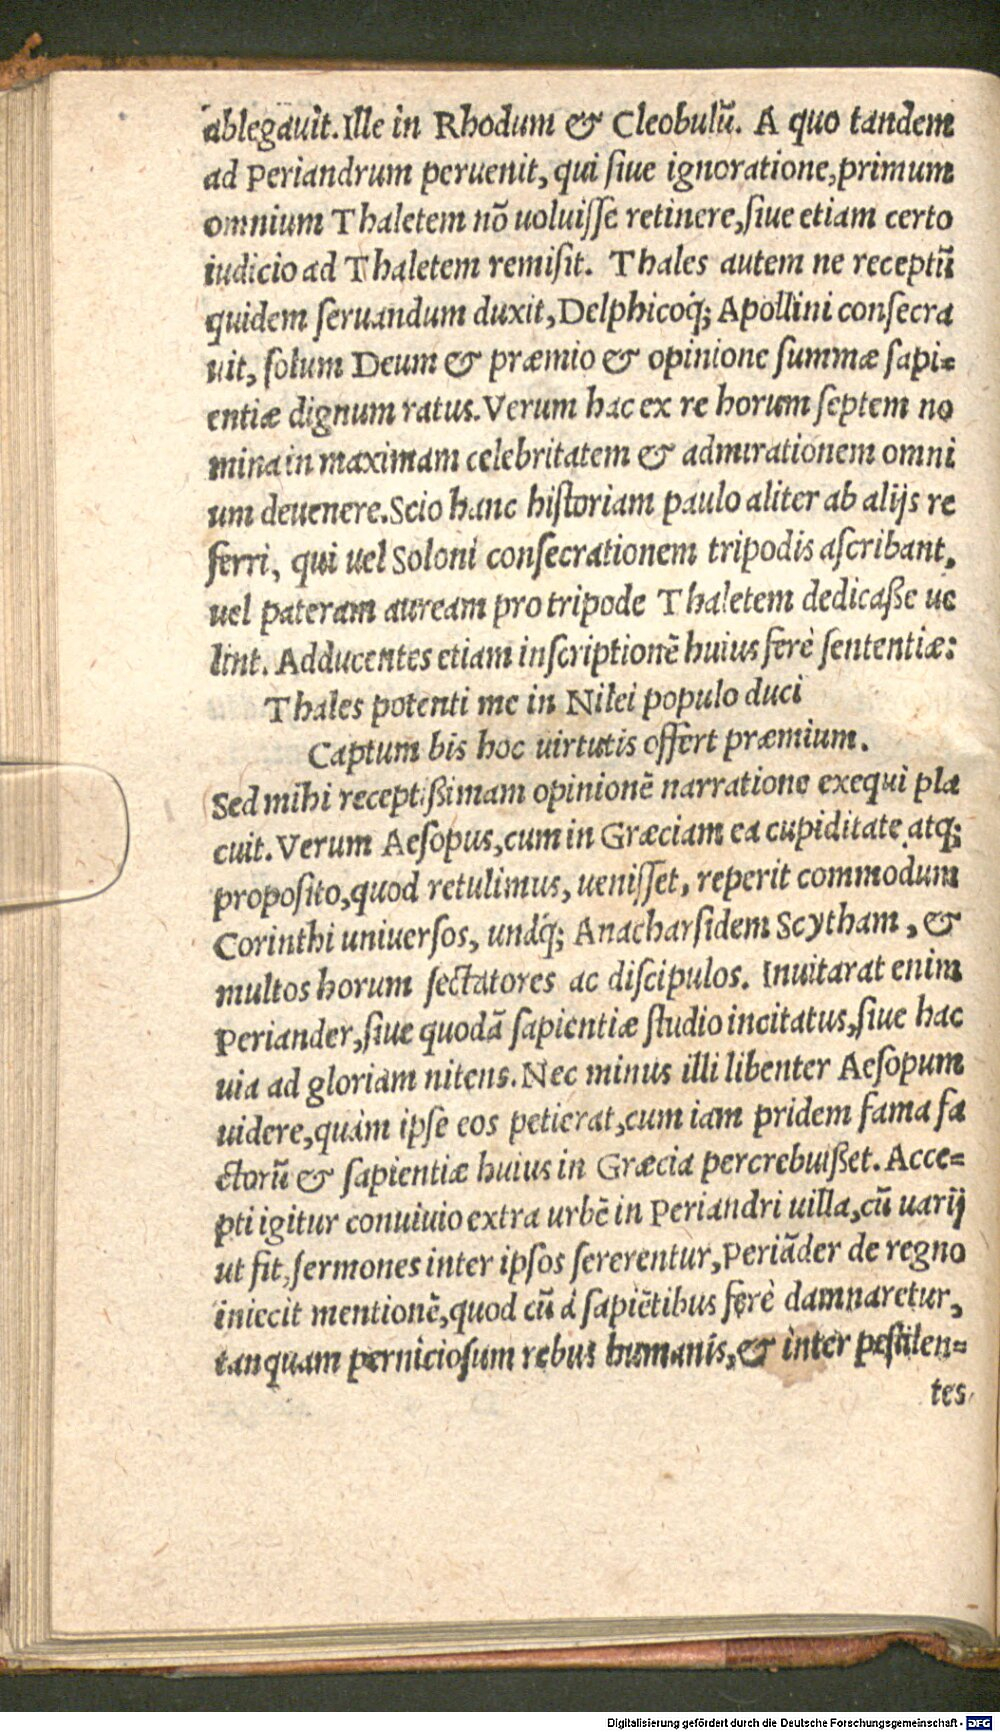 ablegauit. Ille in Rhodum & Cleobulũ. A quo tandem
ad Periandrum peruenit, qui ſiue ignoratione, primum
omnium Thaletem nõ uoluiſſe retinere, ſiue etiam certo
iudicio ad Thaletem remiſit. Thales autem ne receptũ
quidem ſeruandum duxit, Delphicoq́; Apollini conſecra
uit, ſolum Deum & præmio & opinione ſummæ ſapi=
entiæ dignum ratus. Verum hac ex re horum ſeptem no
mina in maximam celebritatem & admirationem omni
um deuenere. Scio hanc hiſtoriam paulo aliter ab alijs re
ferri, qui uel Soloni conſecrationem tripodis aſcribant,
uel pateram auream pro tripode Thaletem dedicaße ue
lint. Adducentes etiam inſcriptionẽ huius ferè ſententiæ:
Thales potenti me in Nilei populo duci
Captum bis hoc uirtutis offert præmium.
Sed mihi receptißimam opinionẽ narratione exequi pla
cuit. Verum Aeſopus, cum in Græciam ea cupiditate atq;
propoſito, quod retulimus, ueniſſet, reperit commodum
Corinthi uniuerſos, undiq́; Anacharſidem Scytham, &
multos horum ſectatores ac diſcipulos. Inuitarat enim
Periander, ſiue quodã ſapientiæ ſtudio incitatus, ſiue hac
uia ad gloriam nitens. Nec minus illi libenter Aeſopum
uidere, quàm ipſe eos petierat, cum iam pridem fama fa
ctorũ & ſapientiæ huius in Græcia percrebuißet. Acce=
pti igitur conuiuio extra urbẽ in Periandri uilla, cũ uarij
ut fit, ſermones inter ipſos ſererentur, Periãder de regno
iniecit mentionẽ, quod cũ à ſapiẽtibus ferè damnaretur,
tanquam perniciosum rebus humanis, & inter peſtilen=
tes
Digitalisierung gefördert durch die Deutsche Forschungsgemeinschaft - DFG